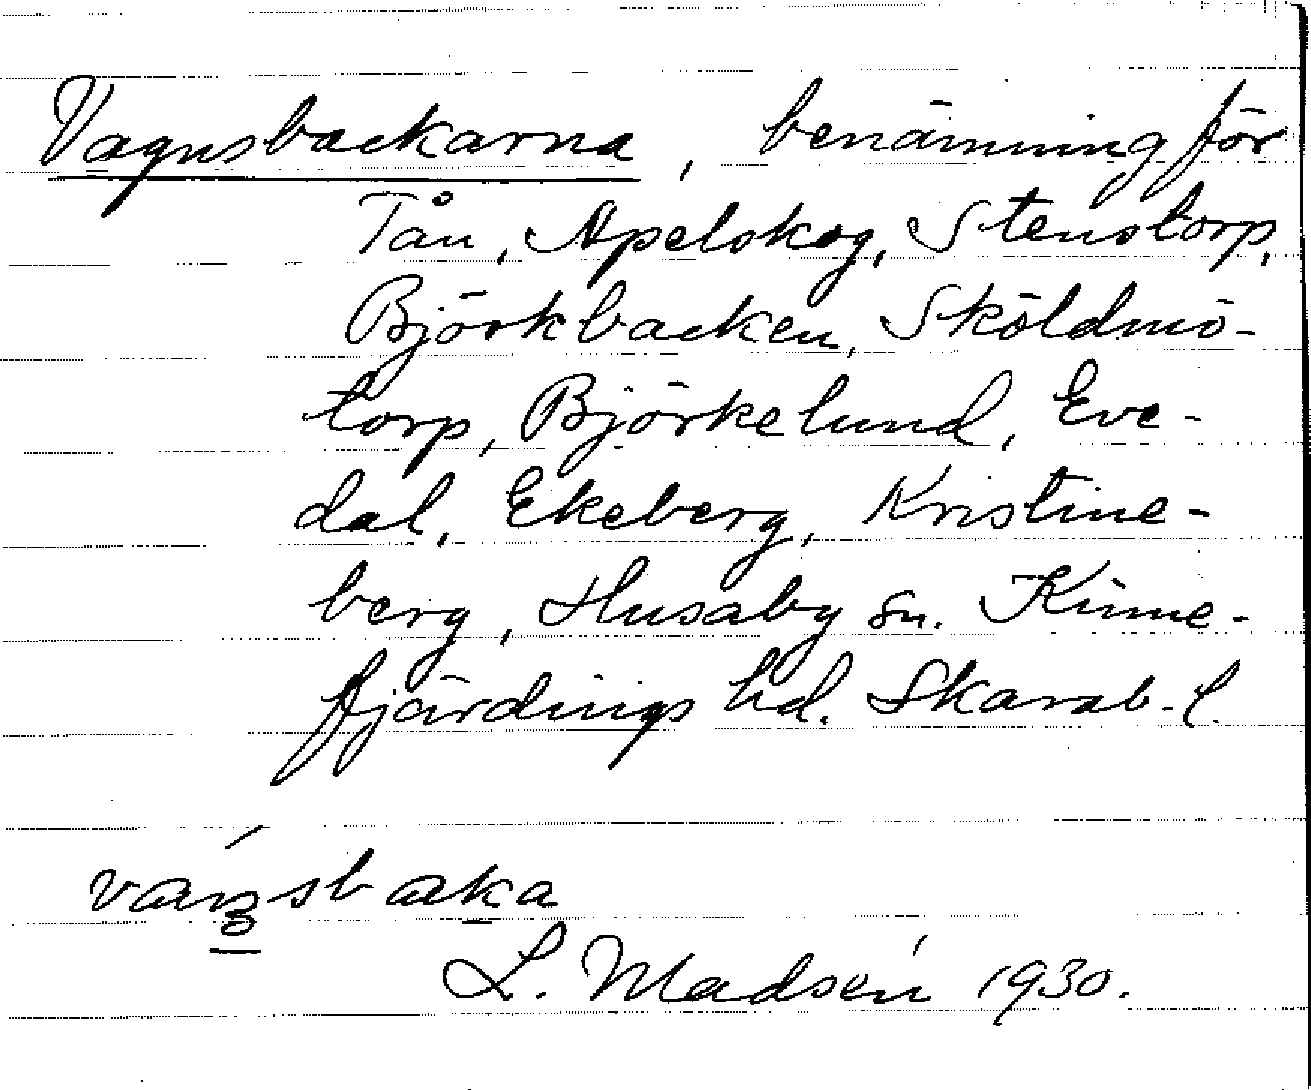 Vagnsbackarna, benämning för
Tån, Apelskog, Stenstorp,
Björkbacken, Sköldmö-
torp, Björkelund, Eve-
dal, Ekeberg, Kristine-
berg, Husaby sn. Kinne-
fjärdings hd. Skarab. l.
L. Madsén 1930.